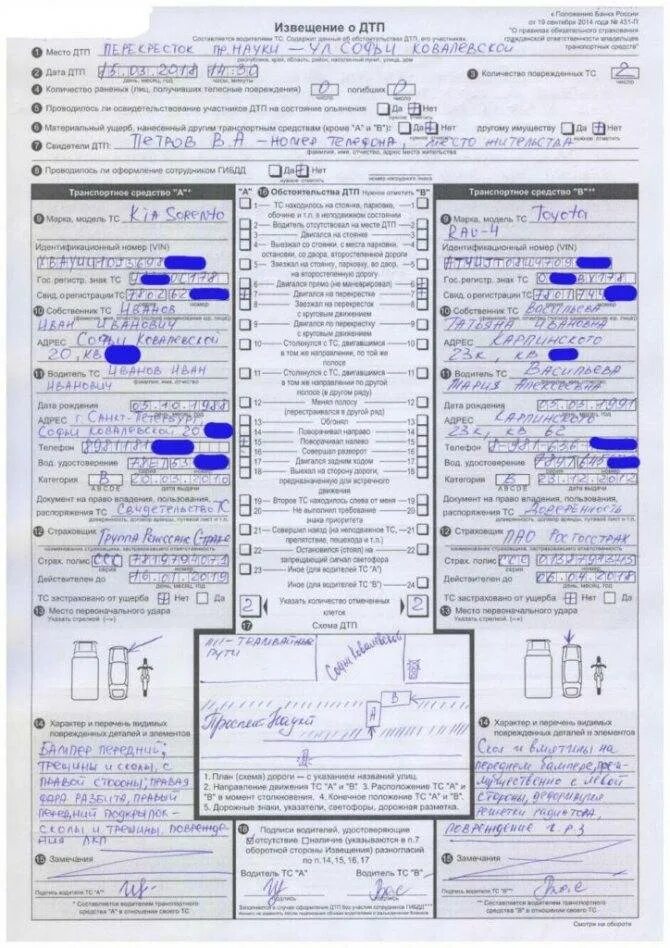 к Положению Банка России
от 19 сентября 2014 года № 431-П
"О правилах обязательного страхования
гражданской ответственности владельцев
транспортных средств"
Извещение о ДТП
Составляется водителями ТС. Содержит данные об обстоятельствах ДТП, его участниках.
1 Место ДТП ПЕРЕКРЕСТОК ПР. НАУКИ – УЛ СОФЬИ КОВАЛЕВСКОЙ
республика, край, область, район, населенный пункт, улица, дом
2 Дата ДТП 15.03.2018 14:30
день, месяц, год часы, минуты
3 Количество поврежденных ТС 2
число
4 Количество раненых (лиц, получивших телесные повреждения) 0 погибших 0
число число
5 Проводилось ли освидетельствование участников ДТП на состояние опьянения Да Нет
нужное отметить
6 Материальный ущерб, нанесенный другим транспортным средствам (кроме "А" и "В") Да Нет другому имуществу Да Нет
нужное отметить нужное отметить
7 Свидетели ДТП: ПЕТРОВ В.А – НОМЕР ТЕЛЕФОНА, МЕСТО ЖИТЕЛЬСТВА
фамилия, имя, отчество, адрес места жительства
8 Проводилось ли оформление сотрудником ГИБДД Да Нет
нужное отметить номер нагрудного знака
Транспортное средство "А"*
9 Марка, модель ТС Kia Sorento
Идентификационный номер (VIN)
Гос. регистр. знак ТС
Свид. о регистрации ТС
серия номер
10 Собственник ТС ИВАНОВ
ИВАН ИВАНОВИЧ
АДРЕС СОФЬИ КОВАЛЕВСКОЙ
20, КВ
11 Водитель ТС ИВАНОВ ИВАН
фамилия, имя, отчество
ИВАНОВИЧ
Дата рождения 03.10.1988
день, месяц, год
АДРЕС г. САНКТ-ПЕТЕРБУРГ,
СОФЬИ КОВАЛЕВСКОЙ 20
Телефон 8981181
Вод. удостоверение
серия номер
Категория B 20.03.2010
ABCDE дата выдачи
Документ на право владения, пользования,
распоряжения ТС СВИДЕТЕЛЬСТВО ТС
доверенность, договор аренды, путевой лист и т.п.
12 Страховщик ГРУППА РЕНЕССАНС СТРАХ.
наименование страховщика, застраховавшего ответственность
Страх. полис ССС 7819794073
серия номер
Действителен до 16.01.2019
день, месяц, год
ТС застраховано от ущерба Нет Да
13 Место первоначального удара
Указать стрелкой (→)
14 Характер и перечень видимых
поврежденных деталей и элементов
БАМПЕР ПЕРЕДНИЙ;
ТРЕЩИНЫ И СКОЛЫ, С
ПРАВОЙ СТОРОНЫ; ПРАВАЯ
ФАРА РАЗБИТА, ПРАВЫЙ
ПЕРЕДНИЙ ПОДКРЫЛОК –
СКОЛЫ И ТРЕЩИНЫ, ПОВРЕЖДЕН
ИЯ ЛКП
15 Замечания
Подпись водителя ТС "А"*
* Составляется водителем транспортного
средства "А" в отношении своего ТС
"А" 16 Обстоятельства ДТП Нужное отметить "В"
1 ТС находилось на стоянке, парковке, 1
обочине и т.п. в неподвижном состоянии
2 Водитель отсутствовал на месте ДТП 2
3 Двигался на стоянке 3
4 Выезжал со стоянки, с места парковки, 4
остановки, со двора, второстепенной дороги
5 Заезжал на стоянку, парковку, во двор, 5
на второстепенную дорогу
6 Двигался прямо (не маневрировал) 6
7 Двигался на перекрестке 7
8 Заезжал на перекресток 8
с круговым движением
9 Двигался по перекрестку 9
с круговым движением
10 Столкнулся с ТС, двигавшимся 10
в том же направлении, по той же полосе
11 Столкнулся с ТС, двигавшимся 11
в том же направлении по другой
полосе (в другом ряду)
12 Менял полосу 12
(перестраивался в другой ряд)
13 Обгонял 13
14 Поворачивал направо 14
15 Поворачивал налево 15
16 Совершал разворот 16
17 Двигался задним ходом 17
18 Выехал на сторону дороги, 18
предназначенную для встречного
движения
19 Второе ТС находилось слева от меня 19
20 Не выполнил требование 20
знака приоритета
21 Совершил наезд (на неподвижное ТС, 21
препятствие, пешехода и т.п.)
22 Остановился (стоял) на 22
запрещающий сигнал светофора
23 Иное (для водителя ТС "А") 23
24 Иное (для водителя ТС "В") 24
2 Указать количество отмеченных 2
клеток
17 Схема ДТП
ТРАМВАЙНЫЕ
ПУТИ
СОФЬИ КОВАЛЕВСКОЙ
ПРОСПЕКТ НАУКИ
В
А
1. План (схема) дороги — с указанием названий улиц.
2. Направление движения ТС "А" и "В". 3. Расположение ТС "А" и
"В" в момент столкновения. 4. Конечное положение ТС "А" и "В".
5. Дорожные знаки, указатели, светофоры, дорожная разметка.
18 Подписи водителей, удостоверяющие
отсутствие наличие (указываются в п.7
оборотной стороны Извещения) разногласий
по п.14,15,16,17
Водитель ТС "А" Водитель ТС "В"
подпись подпись
Заполняется в случае оформления ДТП без участия сотрудников ГИБДД.
Ничего не изменять после подписания обоими водителями и разъединения бланков
Транспортное средство "В"**
9 Марка, модель ТС Toyota
RAV-4
Идентификационный номер (VIN)
Гос. регистр. знак ТС
Свид. о регистрации ТС
серия номер
10 Собственник ТС ВАСИЛЬЕВА
ТАТЬЯНА ИВАНОВНА
АДРЕС КАРПИНСКОГО
23К, КВ
11 Водитель ТС ВАСИЛЬЕВА
МАРИЯ АЛЕКСЕЕВНА
Дата рождения 05.05.1991
день, месяц, год
АДРЕС КАРПИНСКОГО
23К, КВ 65
Телефон 8-981-636
Вод. удостоверение
серия номер
Категория B 23.12.2012
ABCDE дата выдачи
Документ на право владения, пользования,
распоряжения ТС ДОВЕРЕННОСТЬ
доверенность, договор аренды, путевой лист и т.п.
12 Страховщик ПАО РОСГОССТРАХ
наименование страховщика, застраховавшего ответственность
Страх. полис ССС
серия номер
Действителен до 06.04.2018
день, месяц, год
ТС застраховано от ущерба Нет Да
13 Место первоначального удара
Указать стрелкой (→)
14 Характер и перечень видимых
поврежденных деталей и элементов
СКОЛ И ВМЯТИНЫ НА
ПЕРЕДНЕМ БАМПЕРЕ, ПРЕИ-
МУЩЕСТВЕННО С ЛЕВОЙ
СТОРОНЫ, ДЕФОРМАЦИЯ
РЕШЕТКИ РАДИАТОРА,
ПОВРЕЖДЕНИЕ Г.Р.З
15 Замечания
Подпись водителя ТС "В"**
** Составляется водителем транспортного
средства "В" в отношении своего ТС
Смотри на обороте